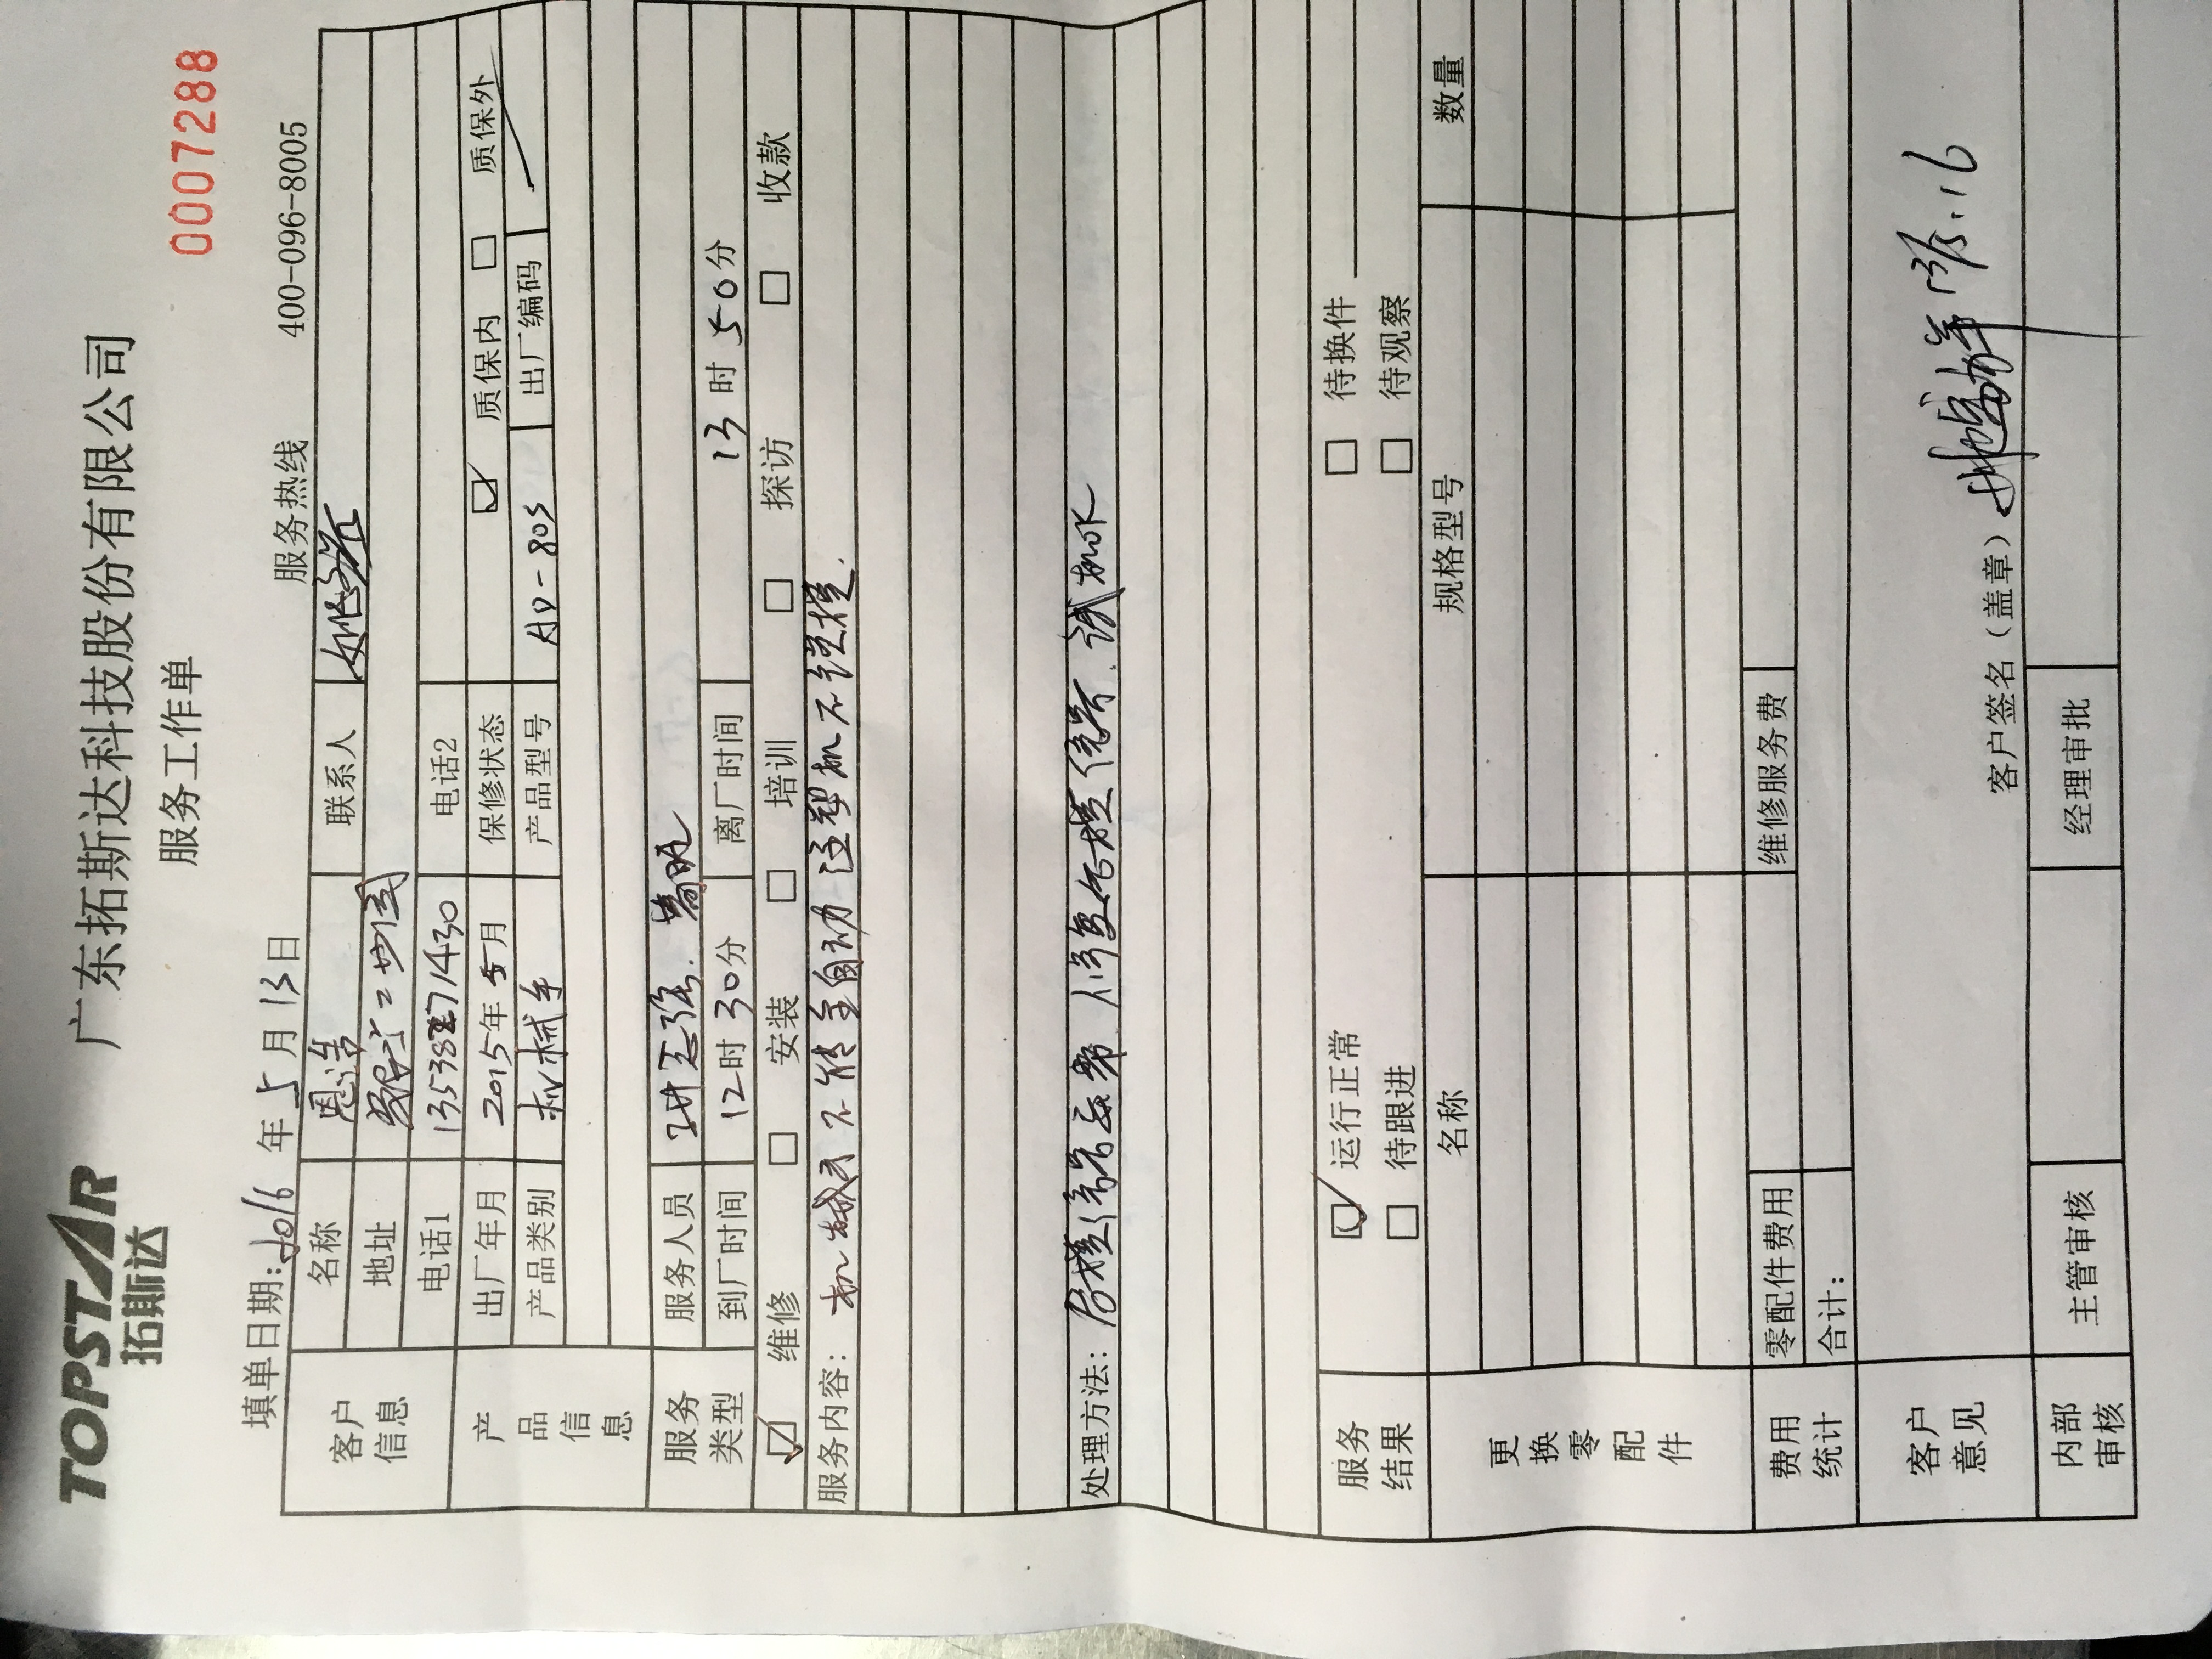 TOPSTAR
拓斯达
广东拓斯达科技股份有限公司
服务工作单
0007288
填单日期: 2016 年 5 月 13 日
服务热线 400-096-8005
客户信息
名称 恩浩 联系人
地址
电话1 电话2
产品信息
出厂年月 2015年 5月 保修状态 质保内 质保外
产品类别 机械手 产品型号 AD-80S 出厂编码
服务类型
服务人员
到厂时间 12时 30分 离厂时间 13时 50分
维修 安装 培训 探访 收款
服务内容: 机械手不能全自动 注塑机不锁模.
处理方法: 修复 试机OK
服务结果
运行正常 待换件
待跟进 待观察
更换零配件
名称 规格型号 数量
费用统计
零配件费用 维修服务费
合计:
客户意见
客户签名(盖章)
内部审核
主管审核 经理审批